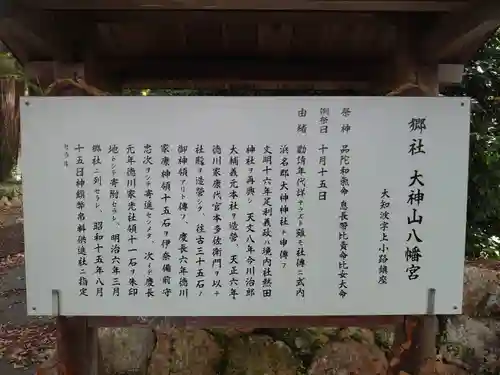 郷社 大神山八幡宮
大知波字上小路鎮座
祭神 品陀和気命 息長帯比賣命 比女大命
例祭日 十月十五日
由緒 勧請年代詳ナラズト雖モ社傳ニ式内
浜名郡大神神社ト申傳フ
文明十六年足利義政ハ境内社熱田
神社ヲ再興シ 天文八年今川治部
大輔義元本社ヲ造営、天正六年
徳川家康代官本多佐衛門ヲ以テ
社殿ヲ造営シタ、往古三十五石ノ
御神領アリト傳フ、慶長六年徳川
家康神領十五石ヲ伊奈備前守
忠次ヲシテ寄進セシメタ、次イデ慶長
元年徳川家光社領十一石ヲ朱印
地トシテ寄附セラレ、明治六年三月
郷社ニ列セラレ、昭和十五年八月
十五日神饌幣帛料供進社ニ指定
セラル